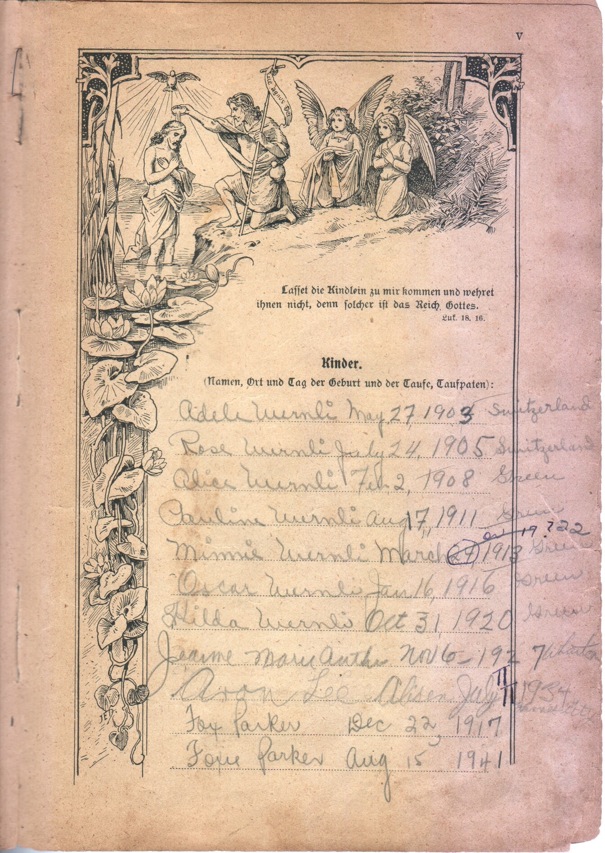 V
Lasset die Kindlein zu mir kommen und wehret
ihnen nicht, denn solcher ist das Reich Gottes.
Luk. 18, 16.
Kinder.
(Namen, Ort und Tag der Geburt und der Taufe, Taufpaten):
Adele Wernli May 27, 1903 Switzerland
Rose Wernli July 24, 1905 Switzerland
Alice Wernli Feb. 2, 1908 Green
Pauline Wernli Aug 17, 1911 Green
19 ? 22
Minnie Wernli March 21 1913 Green
Oscar Wernli Jan 16, 1916 Green
Hilda Wernli Oct 31, 1920 Green
Marie Nov 6 - 192 7
Lee July 11 1934
Fox Parker Dec 22, 1917
Foxie Parker Aug 15 1941